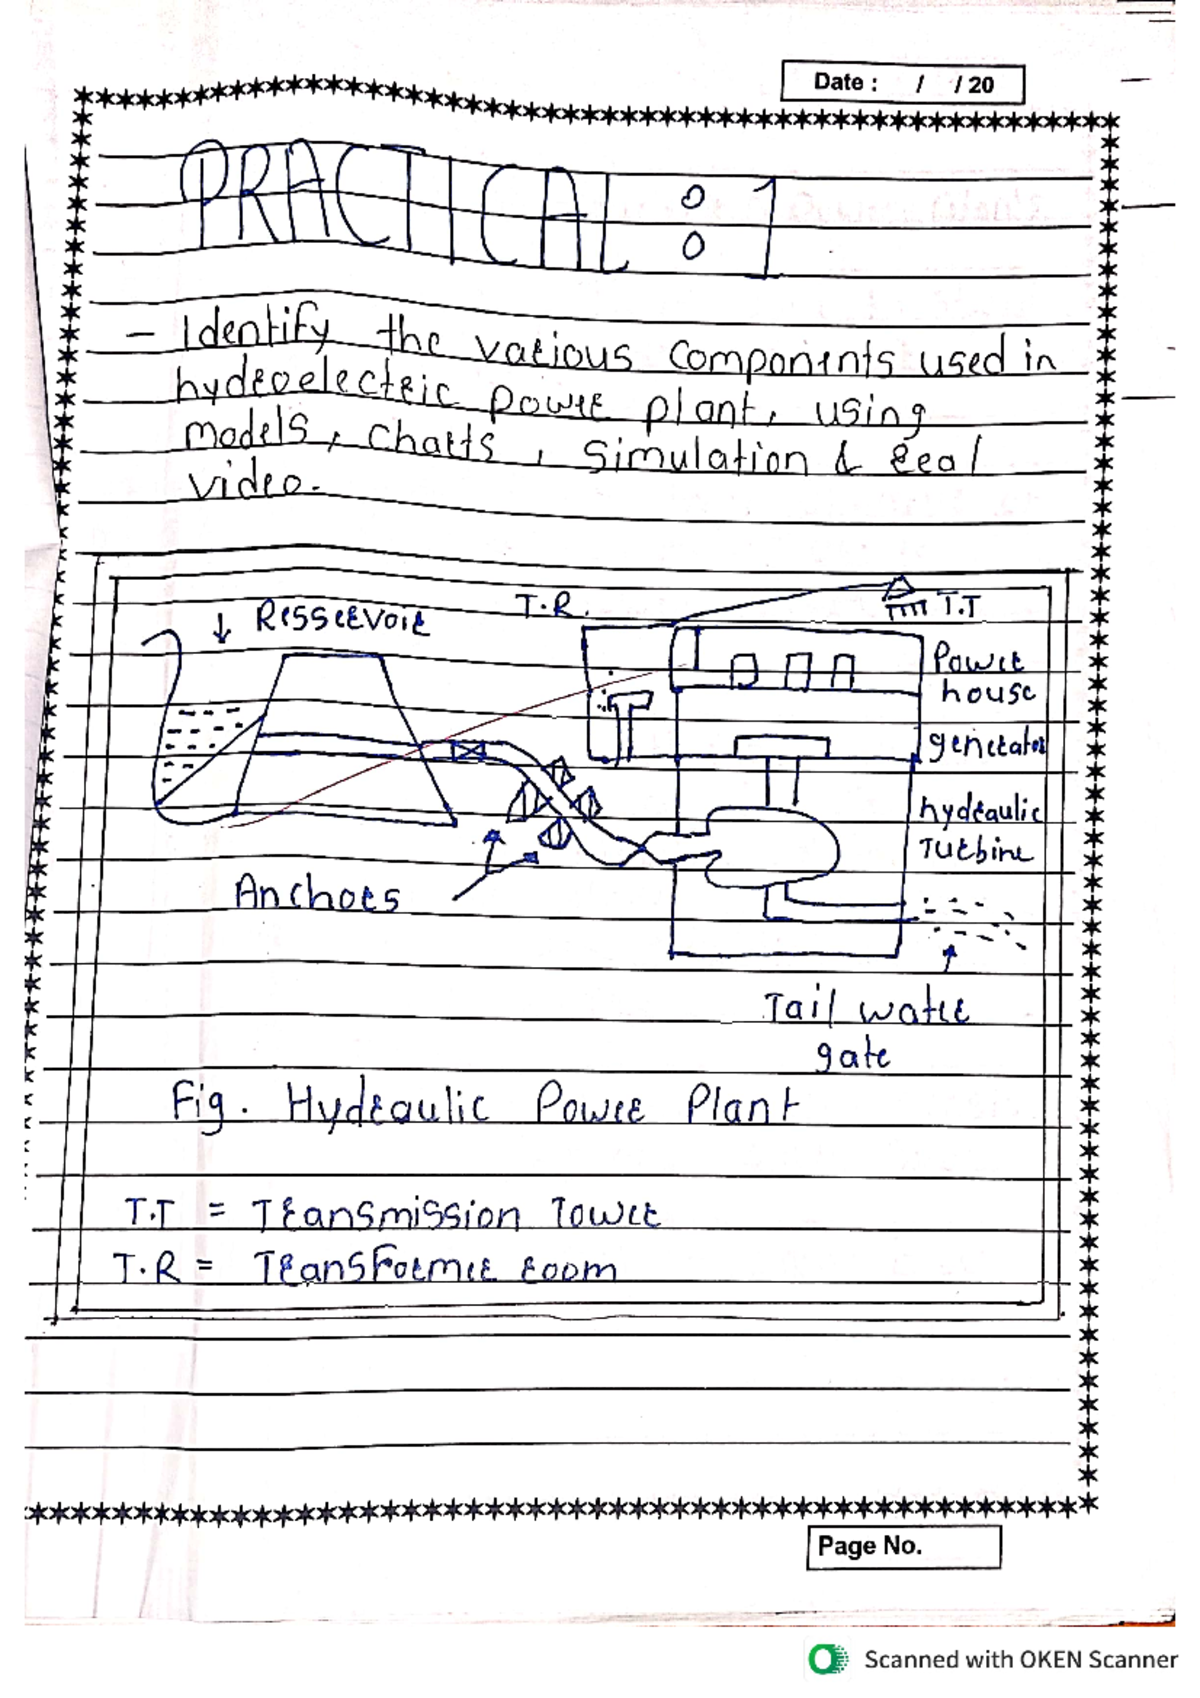 Date : / / 20
PRACTICAL : 1
- Identify the various components used in
hydroelectric power plant, using
models, charts, simulation & real
video.
↓ Resservoir
T.R.
T.T
Power
house
generator
hydraulic
Turbine
Anchors
Tail water
gate
Fig. Hydraulic Power Plant
T.T = Transmission Tower
T.R = Transformer room
Page No.
Scanned with OKEN Scanner